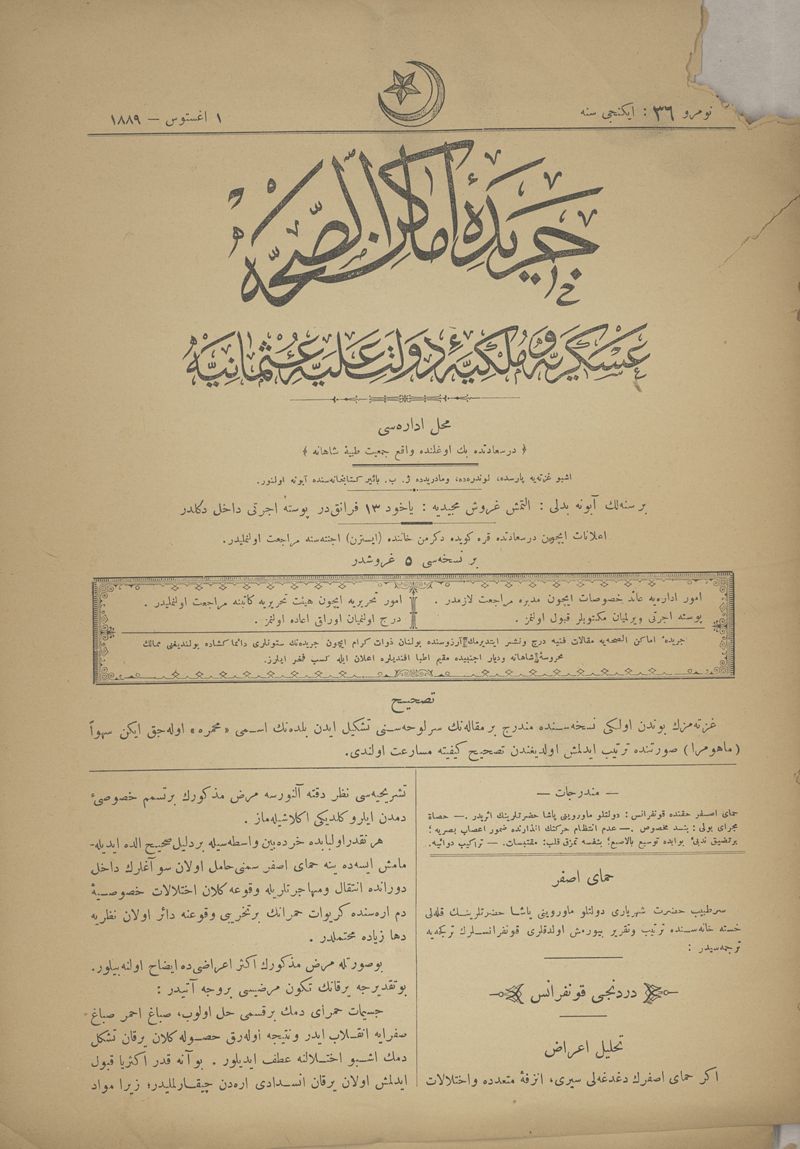 نومرو ٣٦ : ايكنجى سنه
١ اغستوس — ١٨٨٩
جريدۀ اماكن الصّحّه
عسكريه و ملكيۀ دولت عليۀ عثمانيه
محل اداره‌سى
﴿ درسعادتده بك اوغلنده واقع جمعيت طبيۀ شاهانه ﴾
اشبو غزته‌يه پارسده، لوندره‌ده، ومادريدده ژ. ب. بائير كتابخانه‌سنده آبونه اولنور.
بر سنه‌لك آبونه بدلى : التمش غروش مجيديه : ياخود ١٣ فرانقدر پوسته اجرتى داخل دكلدر
اعلانات ايچون درسعادتده قره كويده دكرمن خاننده (ايسترن) اجنته‌سنه مراجعت اولنمليدر.
بر نسخه‌سى ٥ غروشدر
امور اداره‌يه عائد خصوصات ايچون مديره مراجعت لازمدر .
پوسته اجرتى ويرلميان مكتوبلر قبول اولنمز .
امور تحريريه ايچون هيئت تحريريه كاتبنه مراجعت اولنمليدر .
درج اولنميان اوراق اعاده اولنمز .
جريدۀ اماكن الصحه‌يه مقالات فنيه درج ونشر ايتديرمك آرزوسنده بولنان ذوات كرام ايچون جريده‌نك ستونلرى دائما كشاده بولنديغنى ممالك
محروسۀ شاهانه وديار اجنبيده مقيم اطبا افنديلره اعلان ايله كسب فخر ايلرز.
تصحيح
غزته‌مزك بوندن اولكى نسخه‌سنده مندرج بر مقاله‌نك سرلوحه‌سنى تشكيل ايدن بلده‌نك اسمى «محمره» اوله‌جق ايكن سهواً
(ماهومرا) صورتنده ترتيب ايدلمش اولديغندن تصحيح كيفيته مسارعت اولندى.
— مندرجات —
حماى اصفر حقنده قونفرانس : دولتلو ماورويينى پاشا حضرتلرينك اثريدر .— حصاة
مجراى بولى : بنسد مخصوص .— عدم انتظام حركتك انذارنده ضمور اعصاب بصريه ؛
برتضيق ندبى بوابده توسيع بالاصبع؛ بنفسه تمزق قلب: مقتبسات. — تراكيب دوائيه.
حماى اصفر
سرطبيب حضرت شهريارى دولتلو ماورويينى پاشا حضرتلرينك قله‌لى
خسته خانه‌سنده ترتيب وتقرير بيورمش اولدقلرى قونفرانسلرك تركجه‌يه
ترجمه‌سيدر :
دردنجى قونفرانس
تحليل اعراض
اكر حماى اصفرك دغدغه‌لى سيرى، انزفۀ متعدده واختلالات
تشريحيه‌سى نظر دقته آلنورسه مرض مذكورك برتسمم خصوصئ
دمدن ايلرو كلديكى اكلاشيله‌ماز .
هر نقدر اوليابده خرده‌بين واسطه‌سيله بردليل صحيح الده ايديله-
مامش ايسه‌ده ينه حماى اصفر سمنى حامل اولان سو آغارك داخل
دورانده انتقال ومهاجرتلريله وقوعه كلان اختلالات خصوصيۀ
دم اره‌سنده كريوات حمرانك برتخريبى وقوعنه دائر اولان نظريه
دها زياده محتملدر .
بوصورتله مرض مذكورك اكثر اعراضى‌ده ايضاح اولنه‌بيلور.
بوتقديرجه يرقانك تكون مرضيسى بروجه آتيدر :
جسيمات حمراى دمك برقسمى حل اولوب، صباغ احمر صباغ
صفرايه انقلاب ايدر ونتيجه اوله‌رق حصوله كلان يرقان تشكل
دمك اشبو اختلالنه عطف ايديلور . بو آنه قدر اكثريا قبول
ايدلمش اولان يرقان انسدادى اره‌دن چيقارلمليدر؛ زيرا مواد